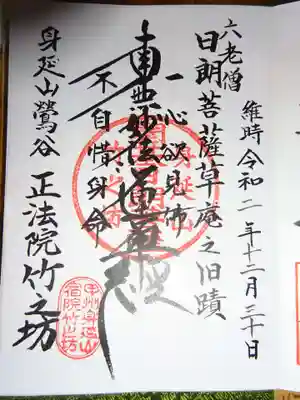 維時令和二年十二月三十日
六老僧
日朗菩薩草庵之旧蹟
一心欲見佛
南無妙法蓮華経
不自惜身命
身延山鶯谷
正法院竹之坊
身延山
竹之坊
甲州身延山
宿院竹之坊